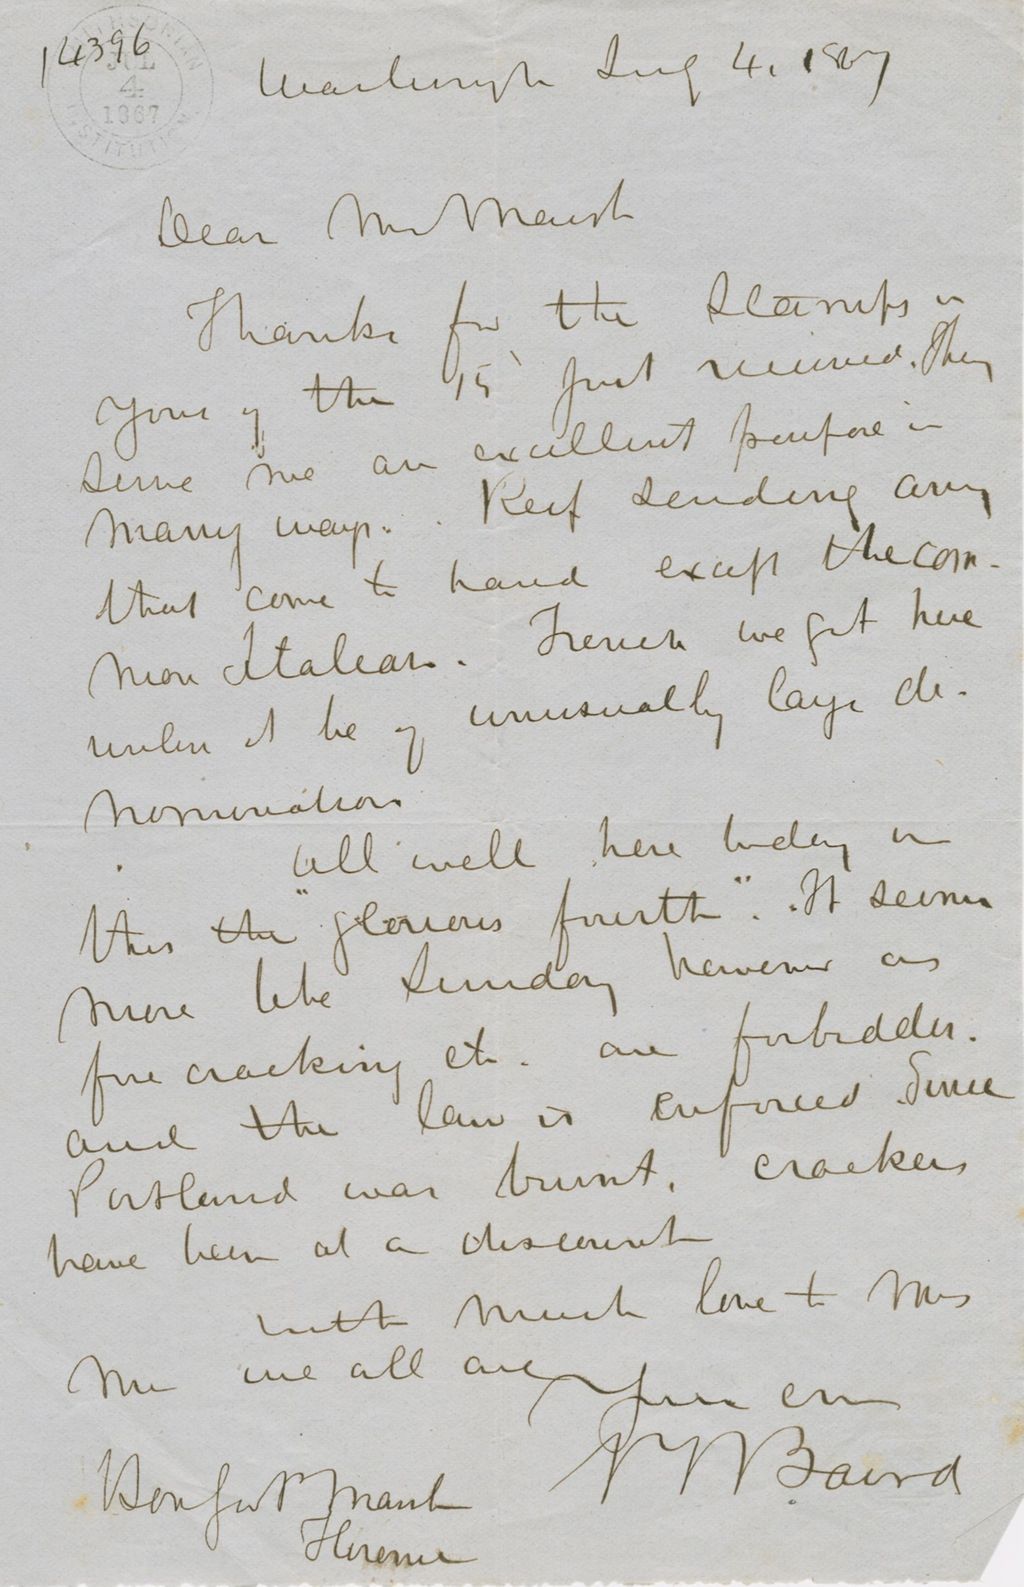 14396
SMITHSONIAN
JUL
4
1867
INSTITUTION
Washington July 4, 1867
Dear Mr Marsh
Thanks for the stamps in
yours of the 15 just received. They
serve me an excellent purpose in
many ways. Keep sending any
that come to hand except the com-
mon Italian. French we get here
unless it be of unusually large de-
nomination
All well here today on
this the "glorious fourth". It seems
more like Sunday however as
fire cracking etc. are forbidden.
and the law is enforced. Since
Portland was burnt, crackers
have been at a discount
with much love to Mrs
M we all are Yours ever
S F Baird
Hon Geo P Marsh
Florence